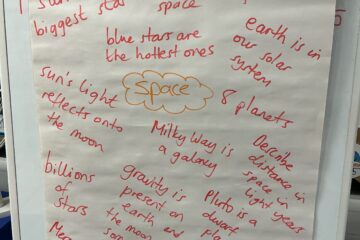 biggest star
space
blue stars are
the hottest ones
earth is in
our solar
system
sun's light
reflects onto
the moon
space
8 planets
Milky Way is
a galaxy
Describe
distance in
space in
light years
billions
of
stars
gravity is
present on
earth and
the moon
Pluto is a
dwarf